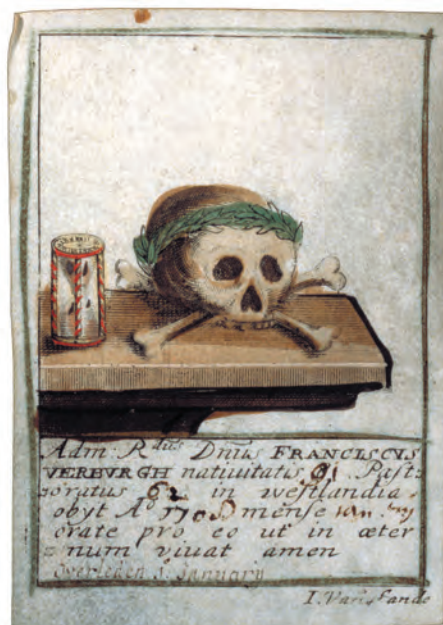 Adm: R^dus Dnus FRANCISCVS
VERBVRGH nativitatis 91 Past:
oratus 62 in westlandia.
obyt A° 1708 mense
orate pro eo ut in æter
num vivat amen
overleden 5: January
I. Van Sande